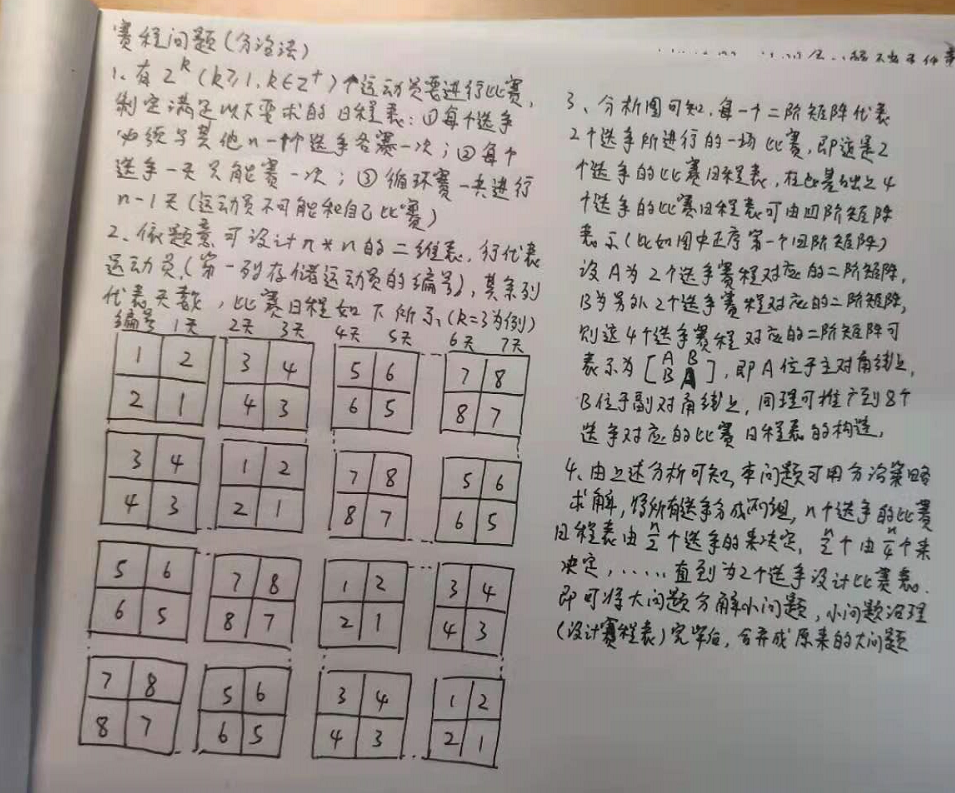 赛程问题(分治法)
1、有2^k(k≥1,k∈Z⁺)个运动员要进行比赛,
制定满足以下要求的日程表:①每个选手
必须与其他n-1个选手各赛一次;②每个
选手一天只能赛一次;③循环赛一共进行
n-1天(运动员不可能和自己比赛)
2、依题意可设计n*n的二维表,行代表
运动员(第一列存储运动员的编号),其余列
代表天数,比赛日程如下所示(k=3为例)
编号 1天 2天 3天 4天 5天 6天 7天
1 2 3 4 5 6 7 8
2 1 4 3 6 5 8 7
3 4 1 2 7 8 5 6
4 3 2 1 8 7 6 5
5 6 7 8 1 2 3 4
6 5 8 7 2 1 4 3
7 8 5 6 3 4 1 2
8 7 6 5 4 3 2 1
3、分析图可知,每一个二阶矩阵代表
2个选手所进行的一场比赛,即这是2
个选手的比赛日程表,在此基础上4
个选手的比赛日程表可由四阶矩阵
表示(比如图中正序第一个四阶矩阵)
设A为2个选手赛程对应的二阶矩阵,
B为另外2个选手赛程对应的二阶矩阵,
则这4个选手赛程对应的二阶矩阵可
表示为[A B
B A],即A位于主对角线上,
B位于副对角线上,同理可推广到8个
选手对应的比赛日程表的构造,
4、由上述分析可知,本问题可用分治策略
求解,将所有选手分成两组,n个选手的比赛
日程表由n/2个选手的来决定,n/2个由n/4个来
决定,......直到为2个选手设计比赛表.
即可将大问题分解小问题,小问题治理
(设计赛程表)完毕后,合并成原来的大问题